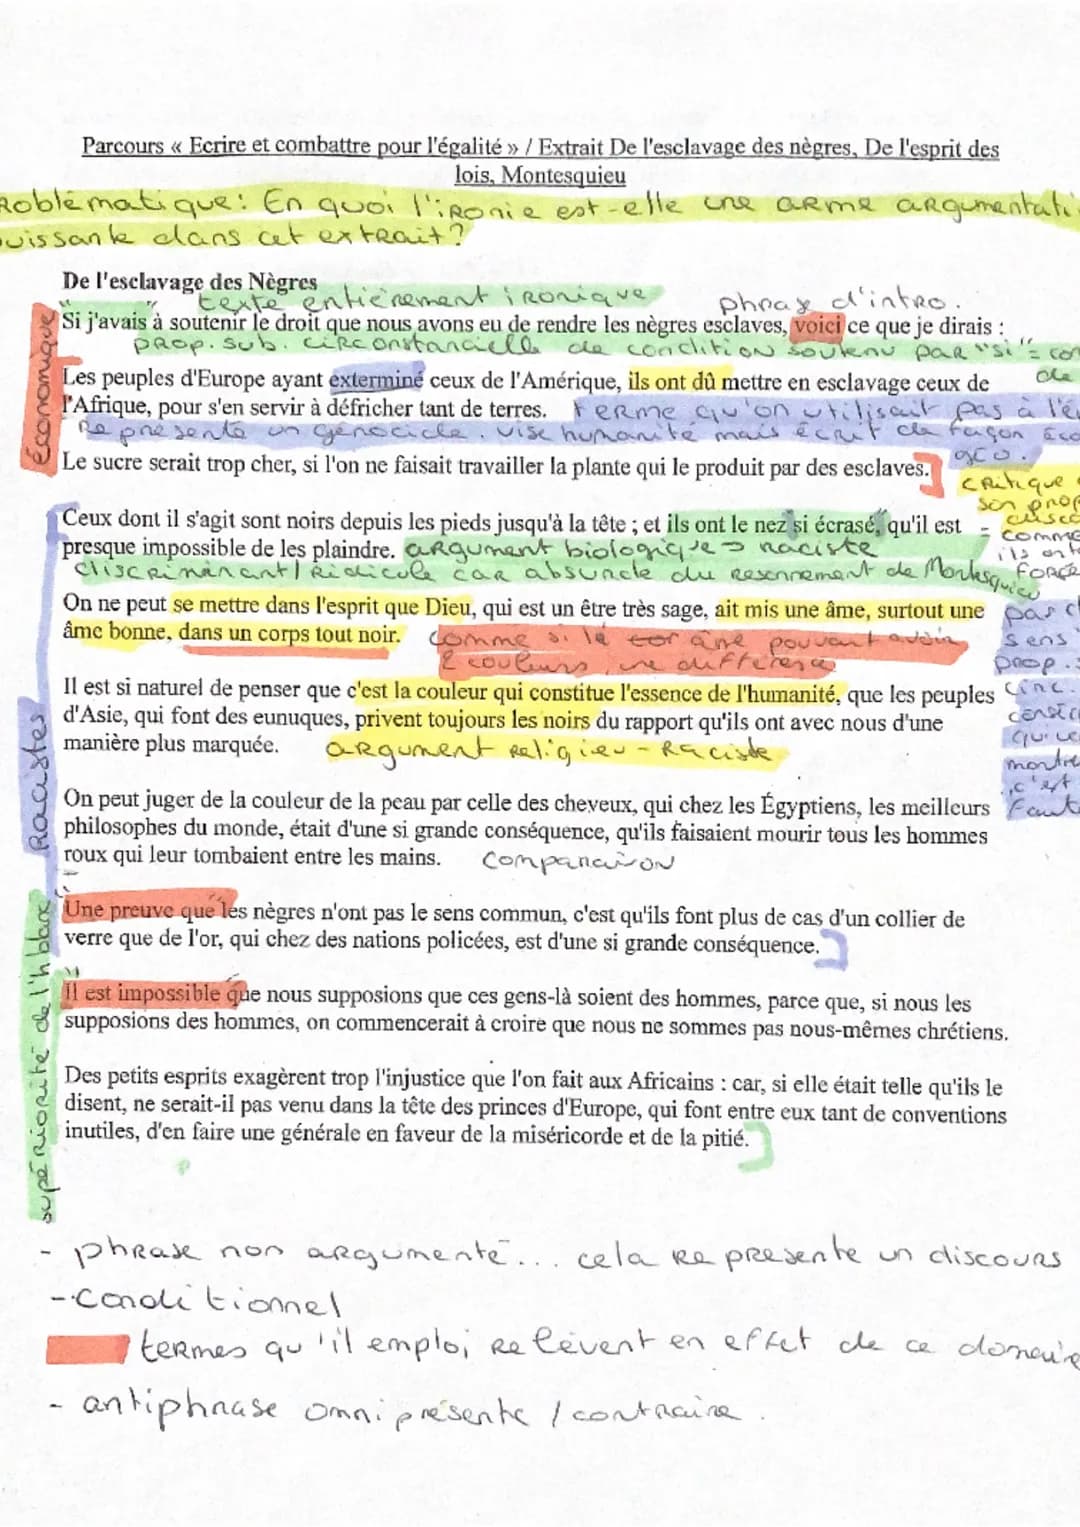 Parcours « Ecrire et combattre pour l'égalité » / Extrait De l'esclavage des nègres, De l'esprit des
lois, Montesquieu
roblématique: En quoi l'ironie est-elle une arme argumentati
uissante dans cet extrait?
De l'esclavage des Nègres
texte entièrement ironique
phrase d'intro.
Si j'avais à soutenir le droit que nous avons eu de rendre les nègres esclaves, voici ce que je dirais :
prop. sub. circonstancielle de condition soutenu par "si" = con
de
économique
Les peuples d'Europe ayant exterminé ceux de l'Amérique, ils ont dû mettre en esclavage ceux de
l'Afrique, pour s'en servir à défricher tant de terres.
terme qu'on utilisait pas à l'é
Représente un génocide. vise humanité mais écrit de façon éco
Le sucre serait trop cher, si l'on ne faisait travailler la plante qui le produit par des esclaves.
critique
son prop
disco
Ceux dont il s'agit sont noirs depuis les pieds jusqu'à la tête ; et ils ont le nez si écrasé, qu'il est
= comme
presque impossible de les plaindre.
argument biologique → raciste
ils ont
discriminant / Ridicule car absurde du resonnement de Montesquieu
FORCE
On ne peut se mettre dans l'esprit que Dieu, qui est un être très sage, ait mis une âme, surtout une
âme bonne, dans un corps tout noir.
comme si le âme pouvant avoir
2 couleurs, une différence
pas
sens
prop.
circ.
Il est si naturel de penser que c'est la couleur qui constitue l'essence de l'humanité, que les peuples
d'Asie, qui font des eunuques, privent toujours les noirs du rapport qu'ils ont avec nous d'une
manière plus marquée.
argument religieu - Raciste
montre
c'est
Racistes
On peut juger de la couleur de la peau par celle des cheveux, qui chez les Égyptiens, les meilleurs
philosophes du monde, était d'une si grande conséquence, qu'ils faisaient mourir tous les hommes
roux qui leur tombaient entre les mains.
Comparaison
Une preuve que les nègres n'ont pas le sens commun, c'est qu'ils font plus de cas d'un collier de
verre que de l'or, qui chez des nations policées, est d'une si grande conséquence.
supériorité de l'h blanc
Il est impossible que nous supposions que ces gens-là soient des hommes, parce que, si nous les
supposions des hommes, on commencerait à croire que nous ne sommes pas nous-mêmes chrétiens.
Des petits esprits exagèrent trop l'injustice que l'on fait aux Africains : car, si elle était telle qu'ils le
disent, ne serait-il pas venu dans la tête des princes d'Europe, qui font entre eux tant de conventions
inutiles, d'en faire une générale en faveur de la miséricorde et de la pitié.
- phrase non argumenté... cela représente un discours
- Conditionnel
termes qu'il emploi relèvent en effet de ce domaine
- antiphrase omniprésente / contraire.